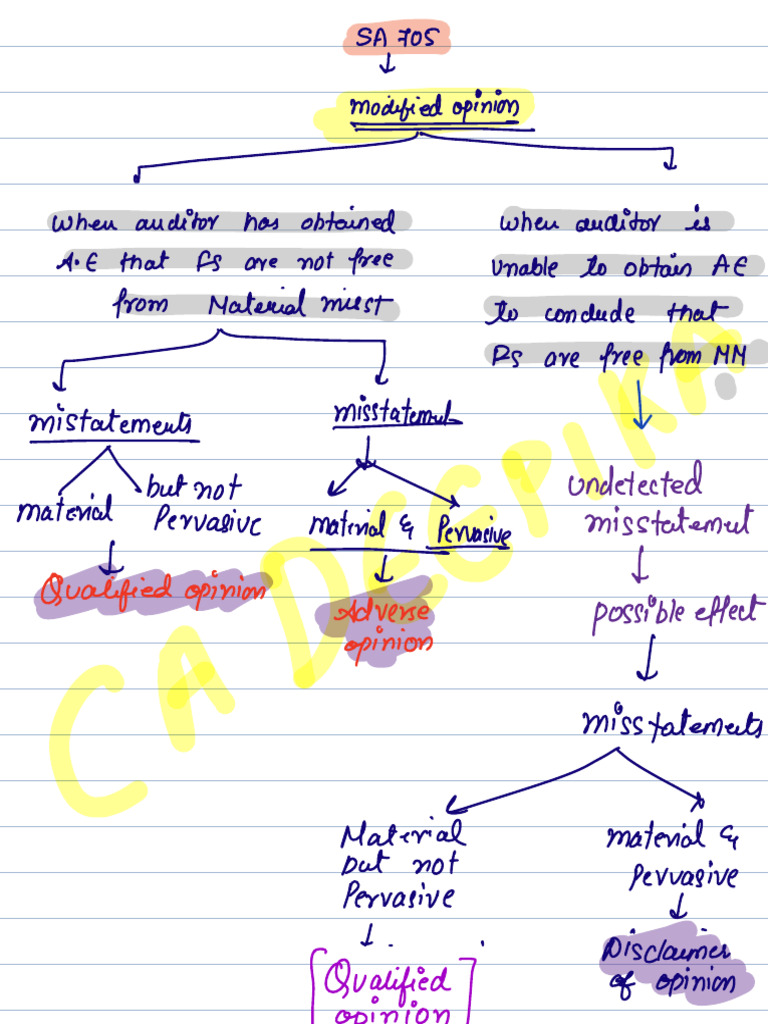 SA 705
modified opinion
When auditor has obtained
A.E that Fs are not free
from Material misst
When auditor is
Unable to obtain AE
to conclude that
Fs are free from MM
mistatements
material
but not
Pervasive
Qualified opinion
misstatemut
material & Pervasive
Adverse
opinion
Undetected
misstatemut
possible effect
misstatements
Material
but not
Pervasive
Qualified
opinion
material &
Pervasive
Disclaimer
of opinion
CA DEEPIKA